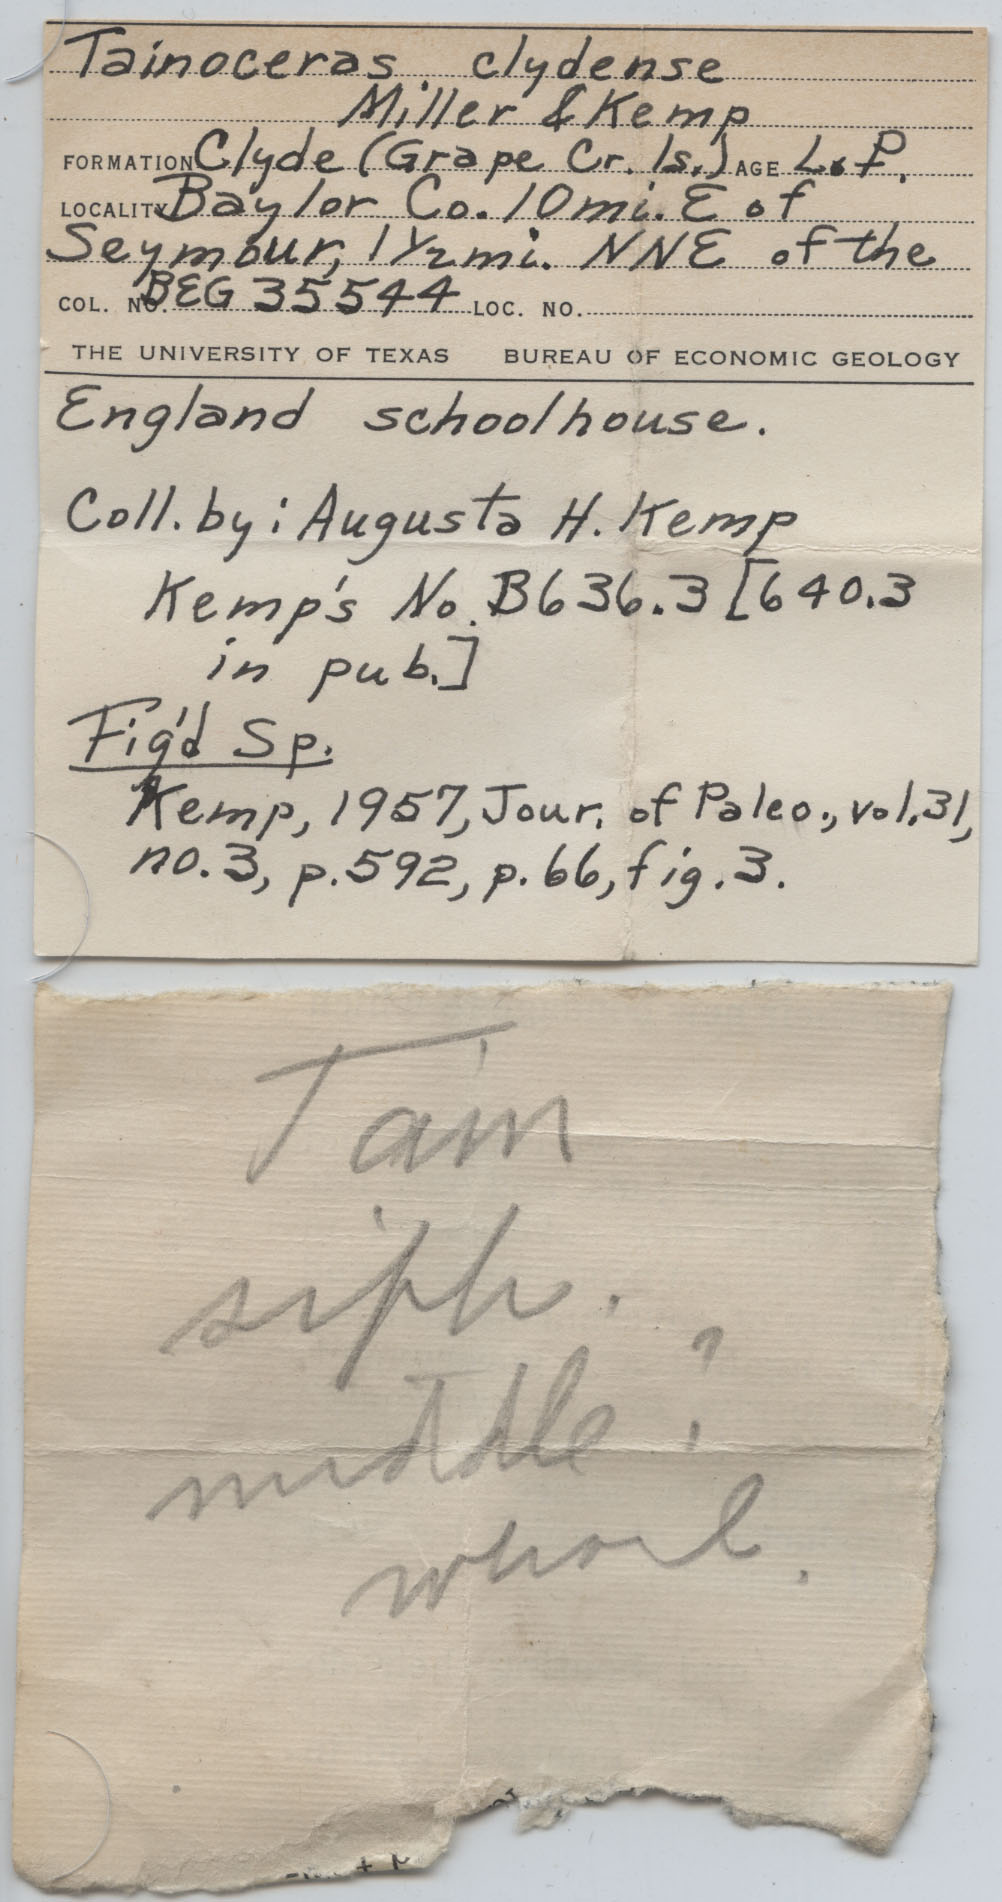 Tainoceras clydense
Miller & Kemp
FORMATION Clyde (Grape Cr. ls.) AGE L. P.
LOCALITY Baylor Co. 10mi. E of
Seymour, 1 1/2 mi. NNE of the
COL. NO. BEG 35544 LOC. NO.
THE UNIVERSITY OF TEXAS BUREAU OF ECONOMIC GEOLOGY
England schoolhouse.
Coll. by: Augusta H. Kemp
Kemp's No. B636.3 [640.3
in pub.]
Fig'd Sp.
Kemp, 1957, Jour. of Paleo., vol. 31,
no. 3, p. 592, p. 66, fig. 3.
Tain
siph.
middle?
whorl.